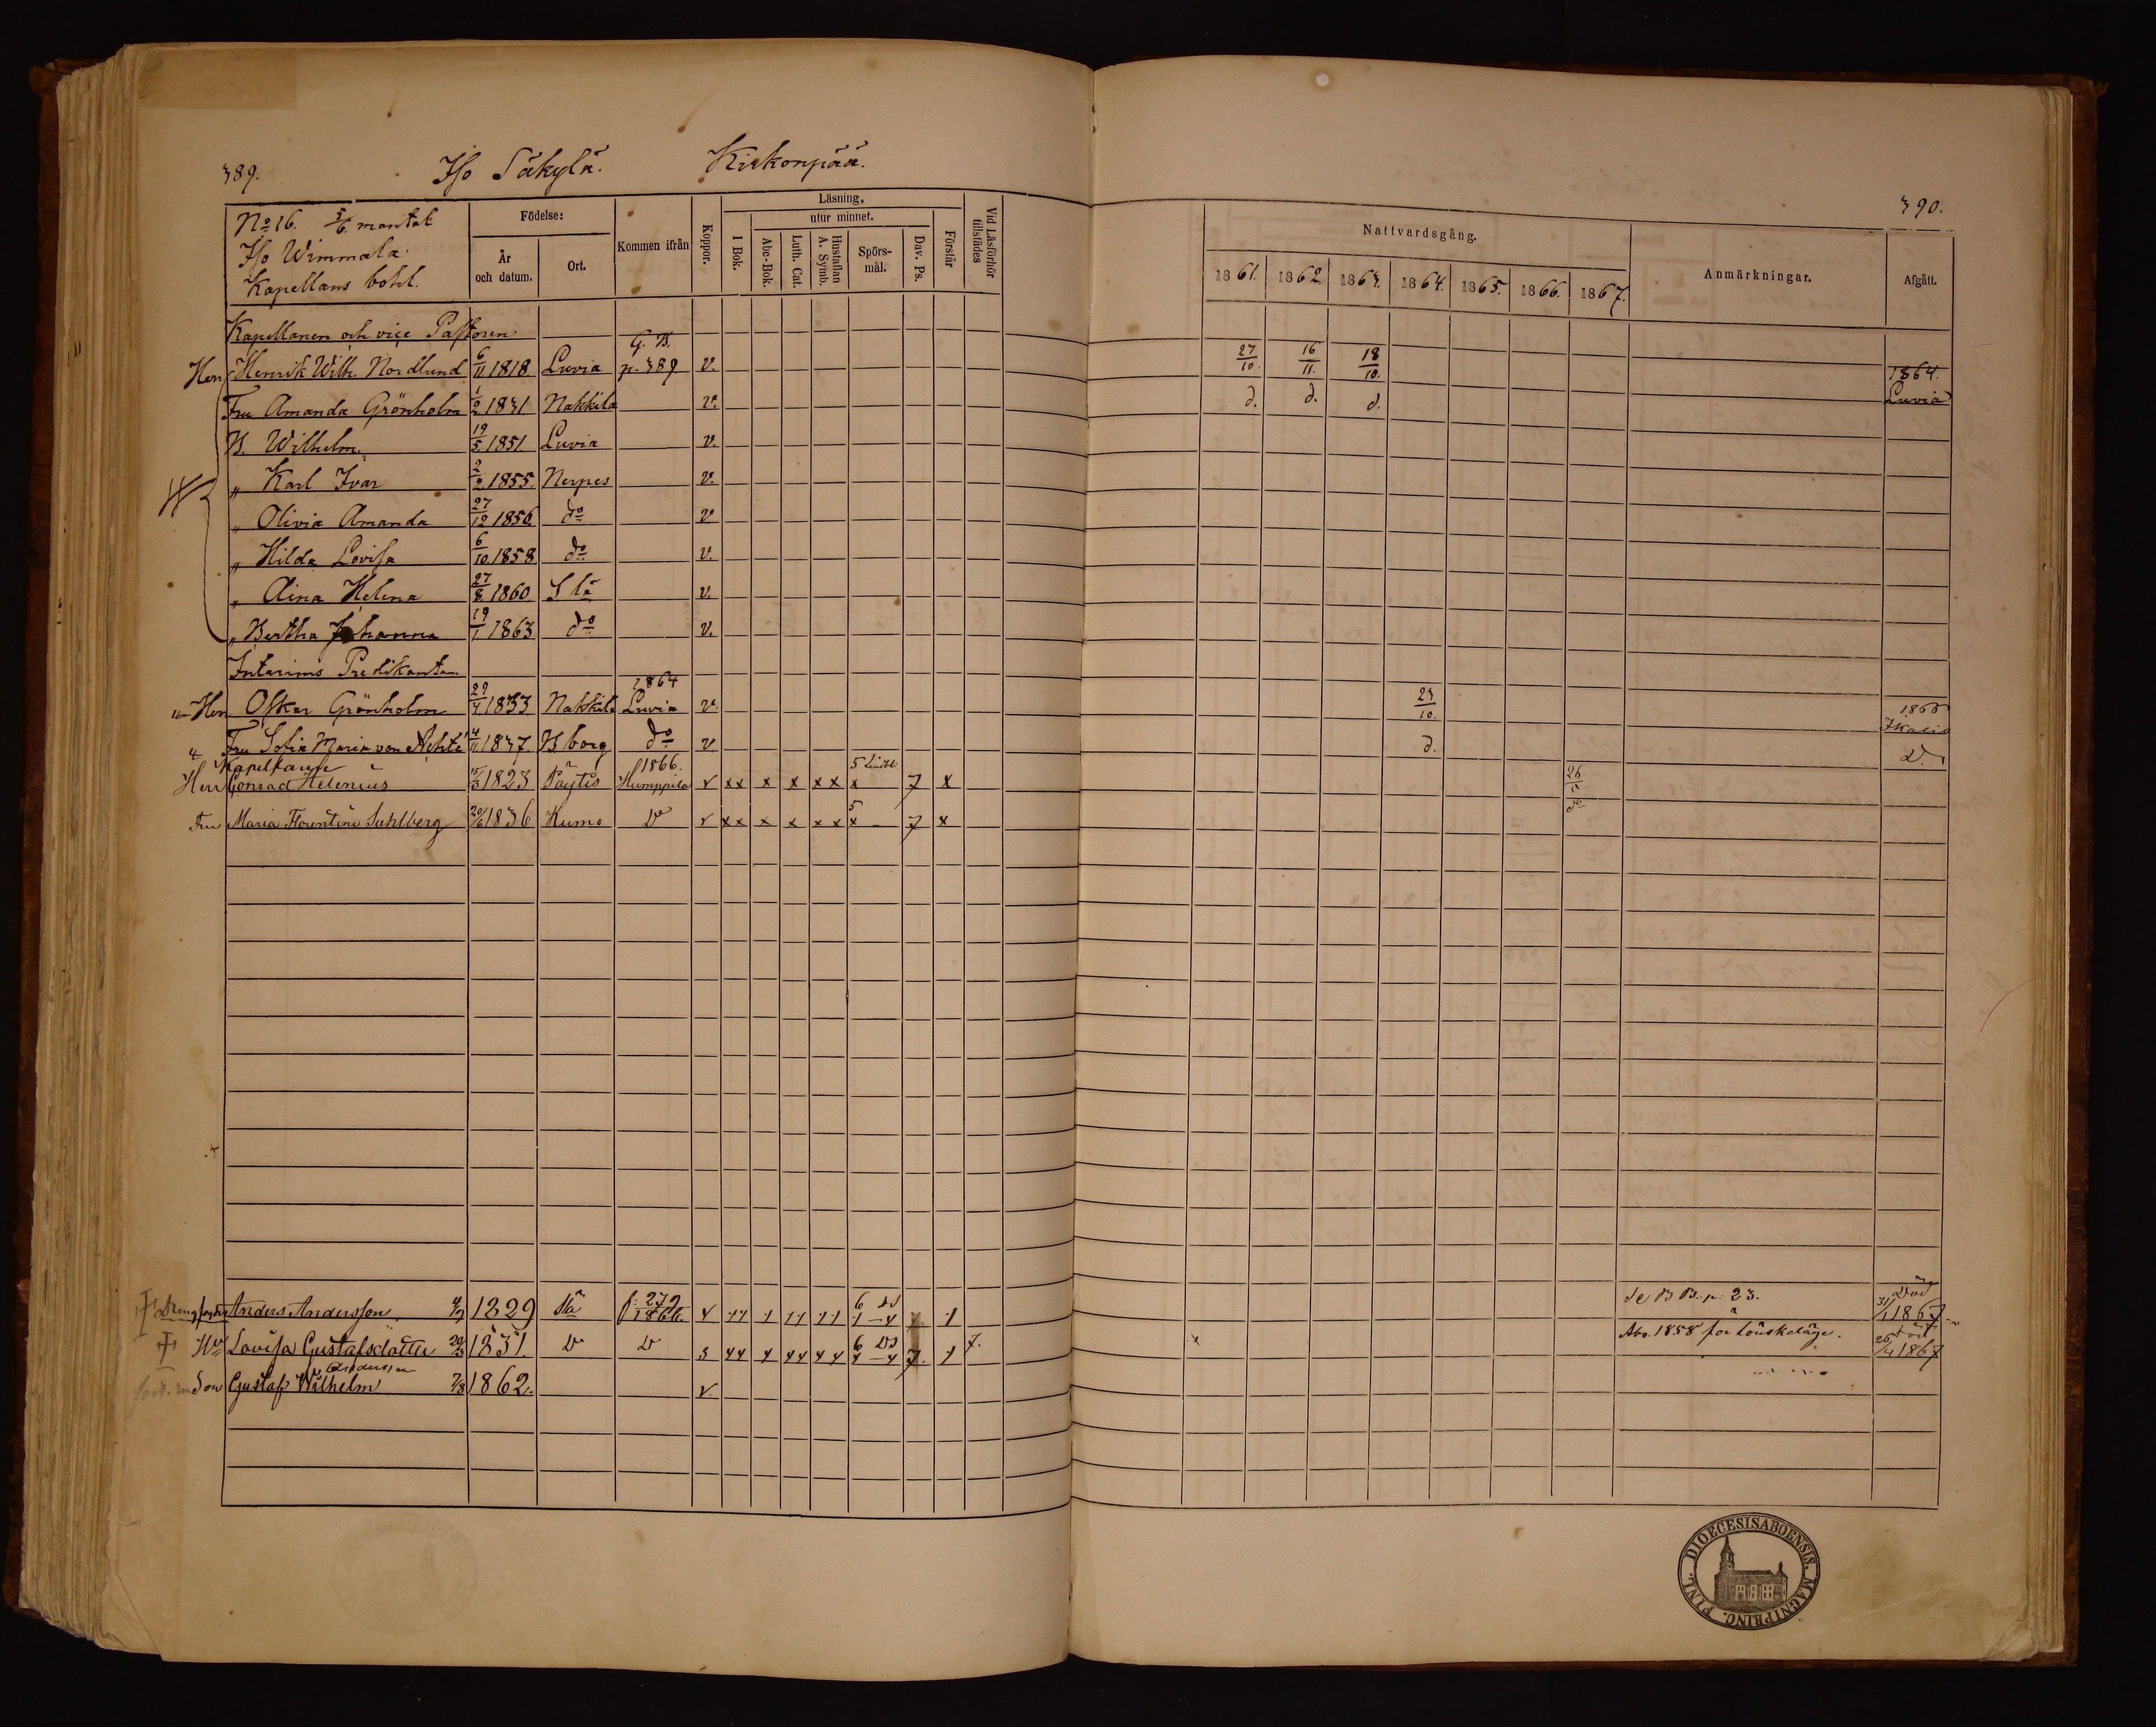 389.
Iso Säkylä. Kirkonpää.
No 16. 5/6 mantal
Iso Wimmala
Kapellans bohl.
Födelse:
År och datum.
Ort.
Kommen ifrån
Koppor.
Läsning,
I Bok.
utur minnet.
Abc-Bok.
Luth. Cat.
Hustaflan A. Symb.
Spörs-mål.
Dav. Ps.
Förstår
Vid Läsförhör tillstädes
Kapellanen och vice Pastoren
Herr Henrik Wilh. Nordlund 6/11 1818 Luvia G. B. p. 389 v.
Fru Amanda Grönholm 1/2 1831 Nakkila v.
B. Wilhelm. 19/5 1851 Luvia v.
„ Karl Ivar 2/2 1855. Nerpes v.
„ Olivia Amanda 27/12 1856 do v
„ Hilda Lovisa 6/10 1858 do v.
„ Aina Helena 27/8 1860 S lä v.
„ Bertha Johanna 19/1 1863 do v.
Interims Predikanten
Herr Oskar Grönholm 29/4 1833 Nakkila 1864 Luvia v.
Fru Sofia Maria von Achté 4/11 1837. B borg do v
Kapellanen
Herr Conrad Helenius 15/3 1823 Pöytis 1866. Humppila v xx x x xx 5 x 7 x
Fru Maria Florentine Sahlberg 20/6 1836 Kumo D v xx x x xx 5 x 7 x
Anders Andersson 4/9 1829 Slä f. 279 1866. v
Lovisa Gustafsdotter 20/3 1831. D D 7. 7.
Andersson
Son Gustaf Wilhelm 7/8 1862. v
390.
Nattvardsgång.
1861. 1862 1863. 1864. 1865. 1866. 1867.
Anmärkningar.
Afgått.
27/10. 16/11. 18/10. 1864. Luvia
d. d. d.
23/10. 1866 Ikalis
d. D.
26
do
Se B B. p. 23. Död 31/1 1867
Abs. 1858 för löuskeläge. Död 26/4 1867
DIOECESIS ABOENSIS. MAGNI PRINC. FINL.